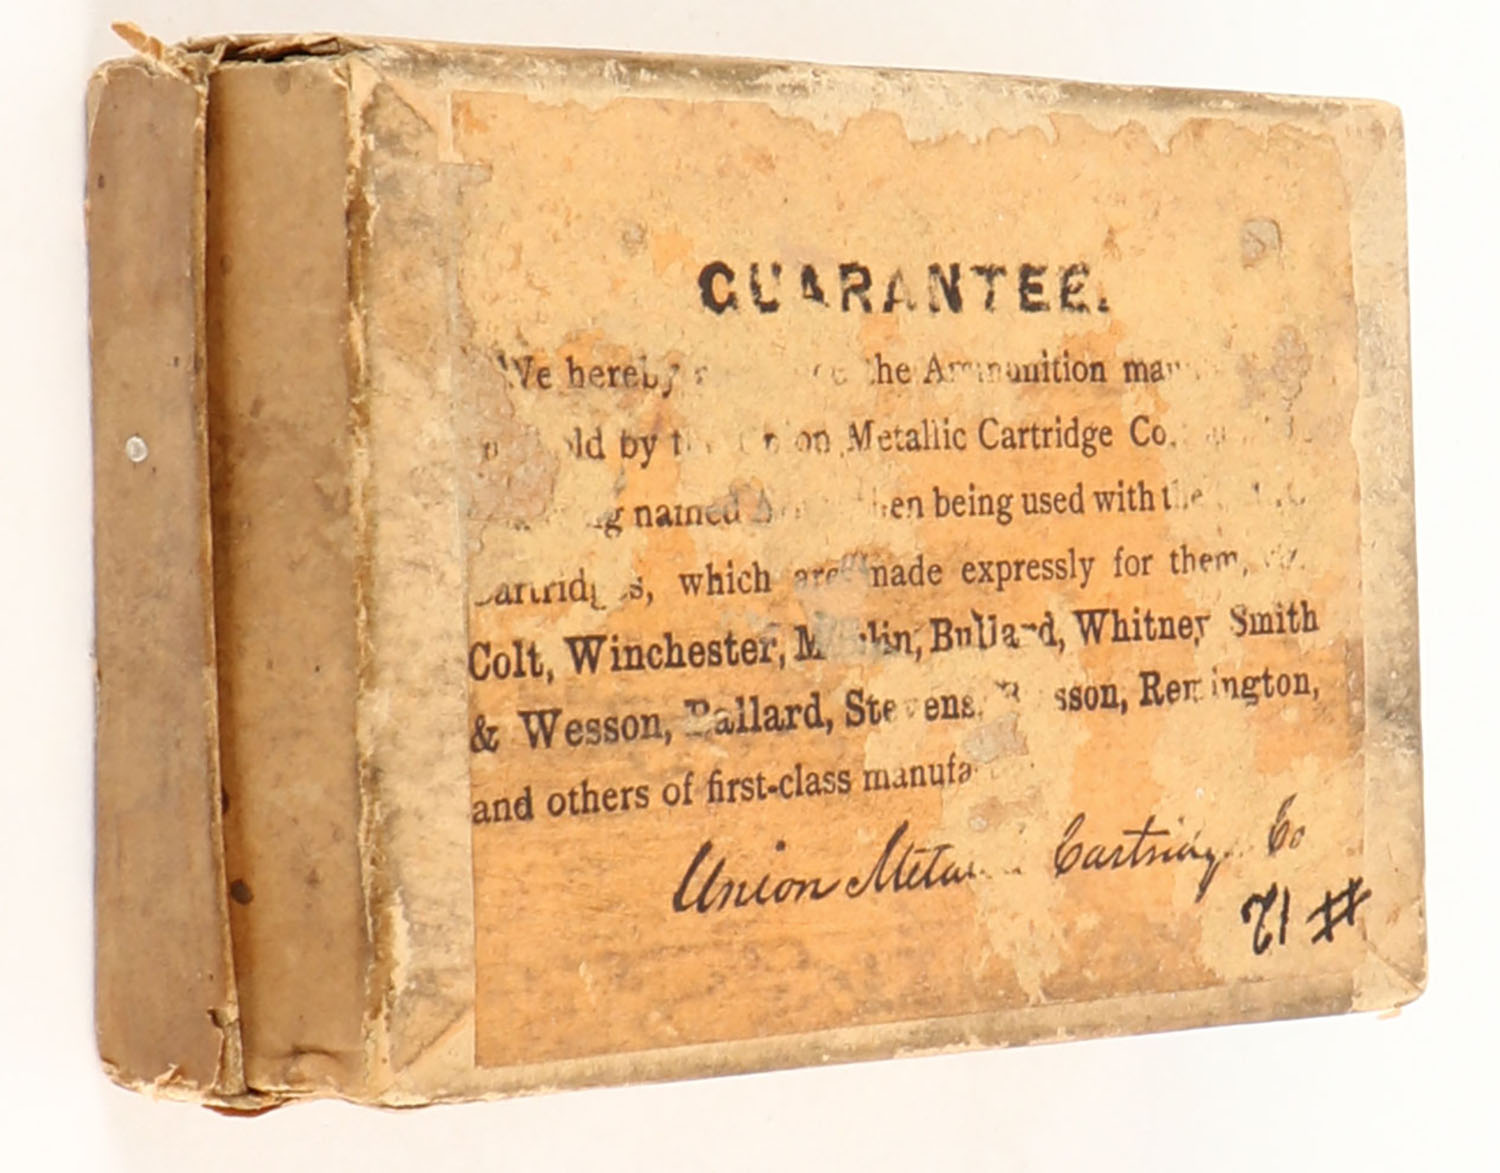 GUARANTEE.
We hereby the Ammunition
by the Union Metallic Cartridge Co.
named being used with the
Cartridges, which are made expressly for them,
Colt, Winchester, Marlin, Bullard, Whitney Smith
& Wesson, Ballard, Stevens, Remington,
and others of first-class
Union Metallic Cartridge Co
71 #